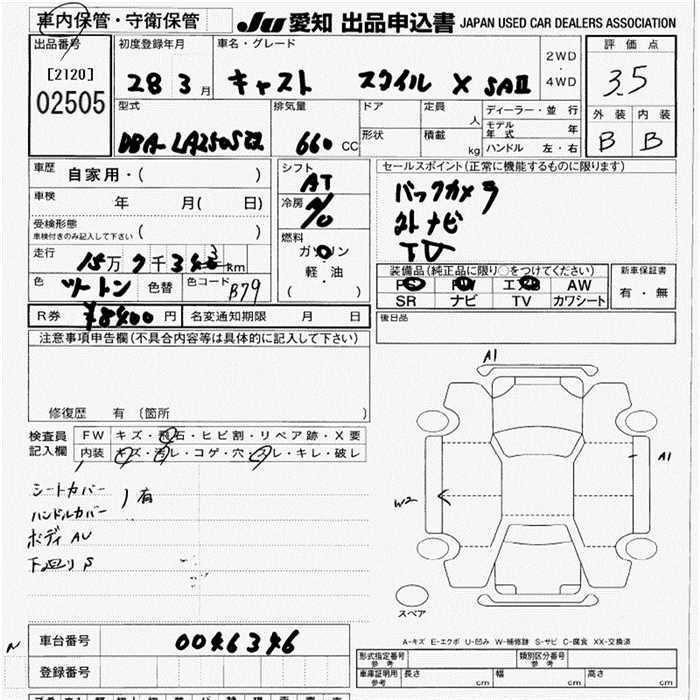 車内保管・守衛保管
JU 愛知 出品申込書 JAPAN USED CAR DEALERS ASSOCIATION
出品番号
[2120]
02505
初度登録年月
28 3 月
車名・グレード
キャスト スタイル X SAⅡ
2WD
・
4WD
評価点
3.5
外装 内装
B B
型式
DBA-LA250S改
排気量
660 CC
ドア
形状
定員
人
積載
kg
ディーラー・並行
モデル年式 年
ハンドル 左・右
車歴 自家用・( )
車検 年 月( 日)
受検形態
車検付きのみ記入して下さい ( )
走行
万 千 km
色 ツートン 色替 色コード B79
シフト
AT
冷房
燃料
ガソリン
軽・油
( )
セールスポイント(正常に機能するものに限ります)
バックカメラ
ナビ
TV
装備品(純正品に限り○をつけてください)
PS PW エアB AW
SR ナビ TV カワシート
新車保証書
有・無
R券 ¥8400 円 名変通知期限 月 日
後日品
注意事項申告欄(不具合内容等は具体的に記入して下さい)
修復歴 有 (箇所 )
検査員
記入欄
FW キズ・飛石・ヒビ割・リペア跡・X要
内装 キズ・汚レ・コゲ・穴・スレ・キレ・破レ
シートカバー
ハンドルカバー ) 有
ボディ AU
下廻り S
A1
A1
W2
スペア
A-キズ E-エクボ U-凹み W-補修跡 S-サビ C-腐食 XX-交換済
N
車台番号 0046346
登録番号
形式指定番号
参考
類別区分番号
参考
車庫証明用
参考
長さ cm 幅 cm 高さ cm